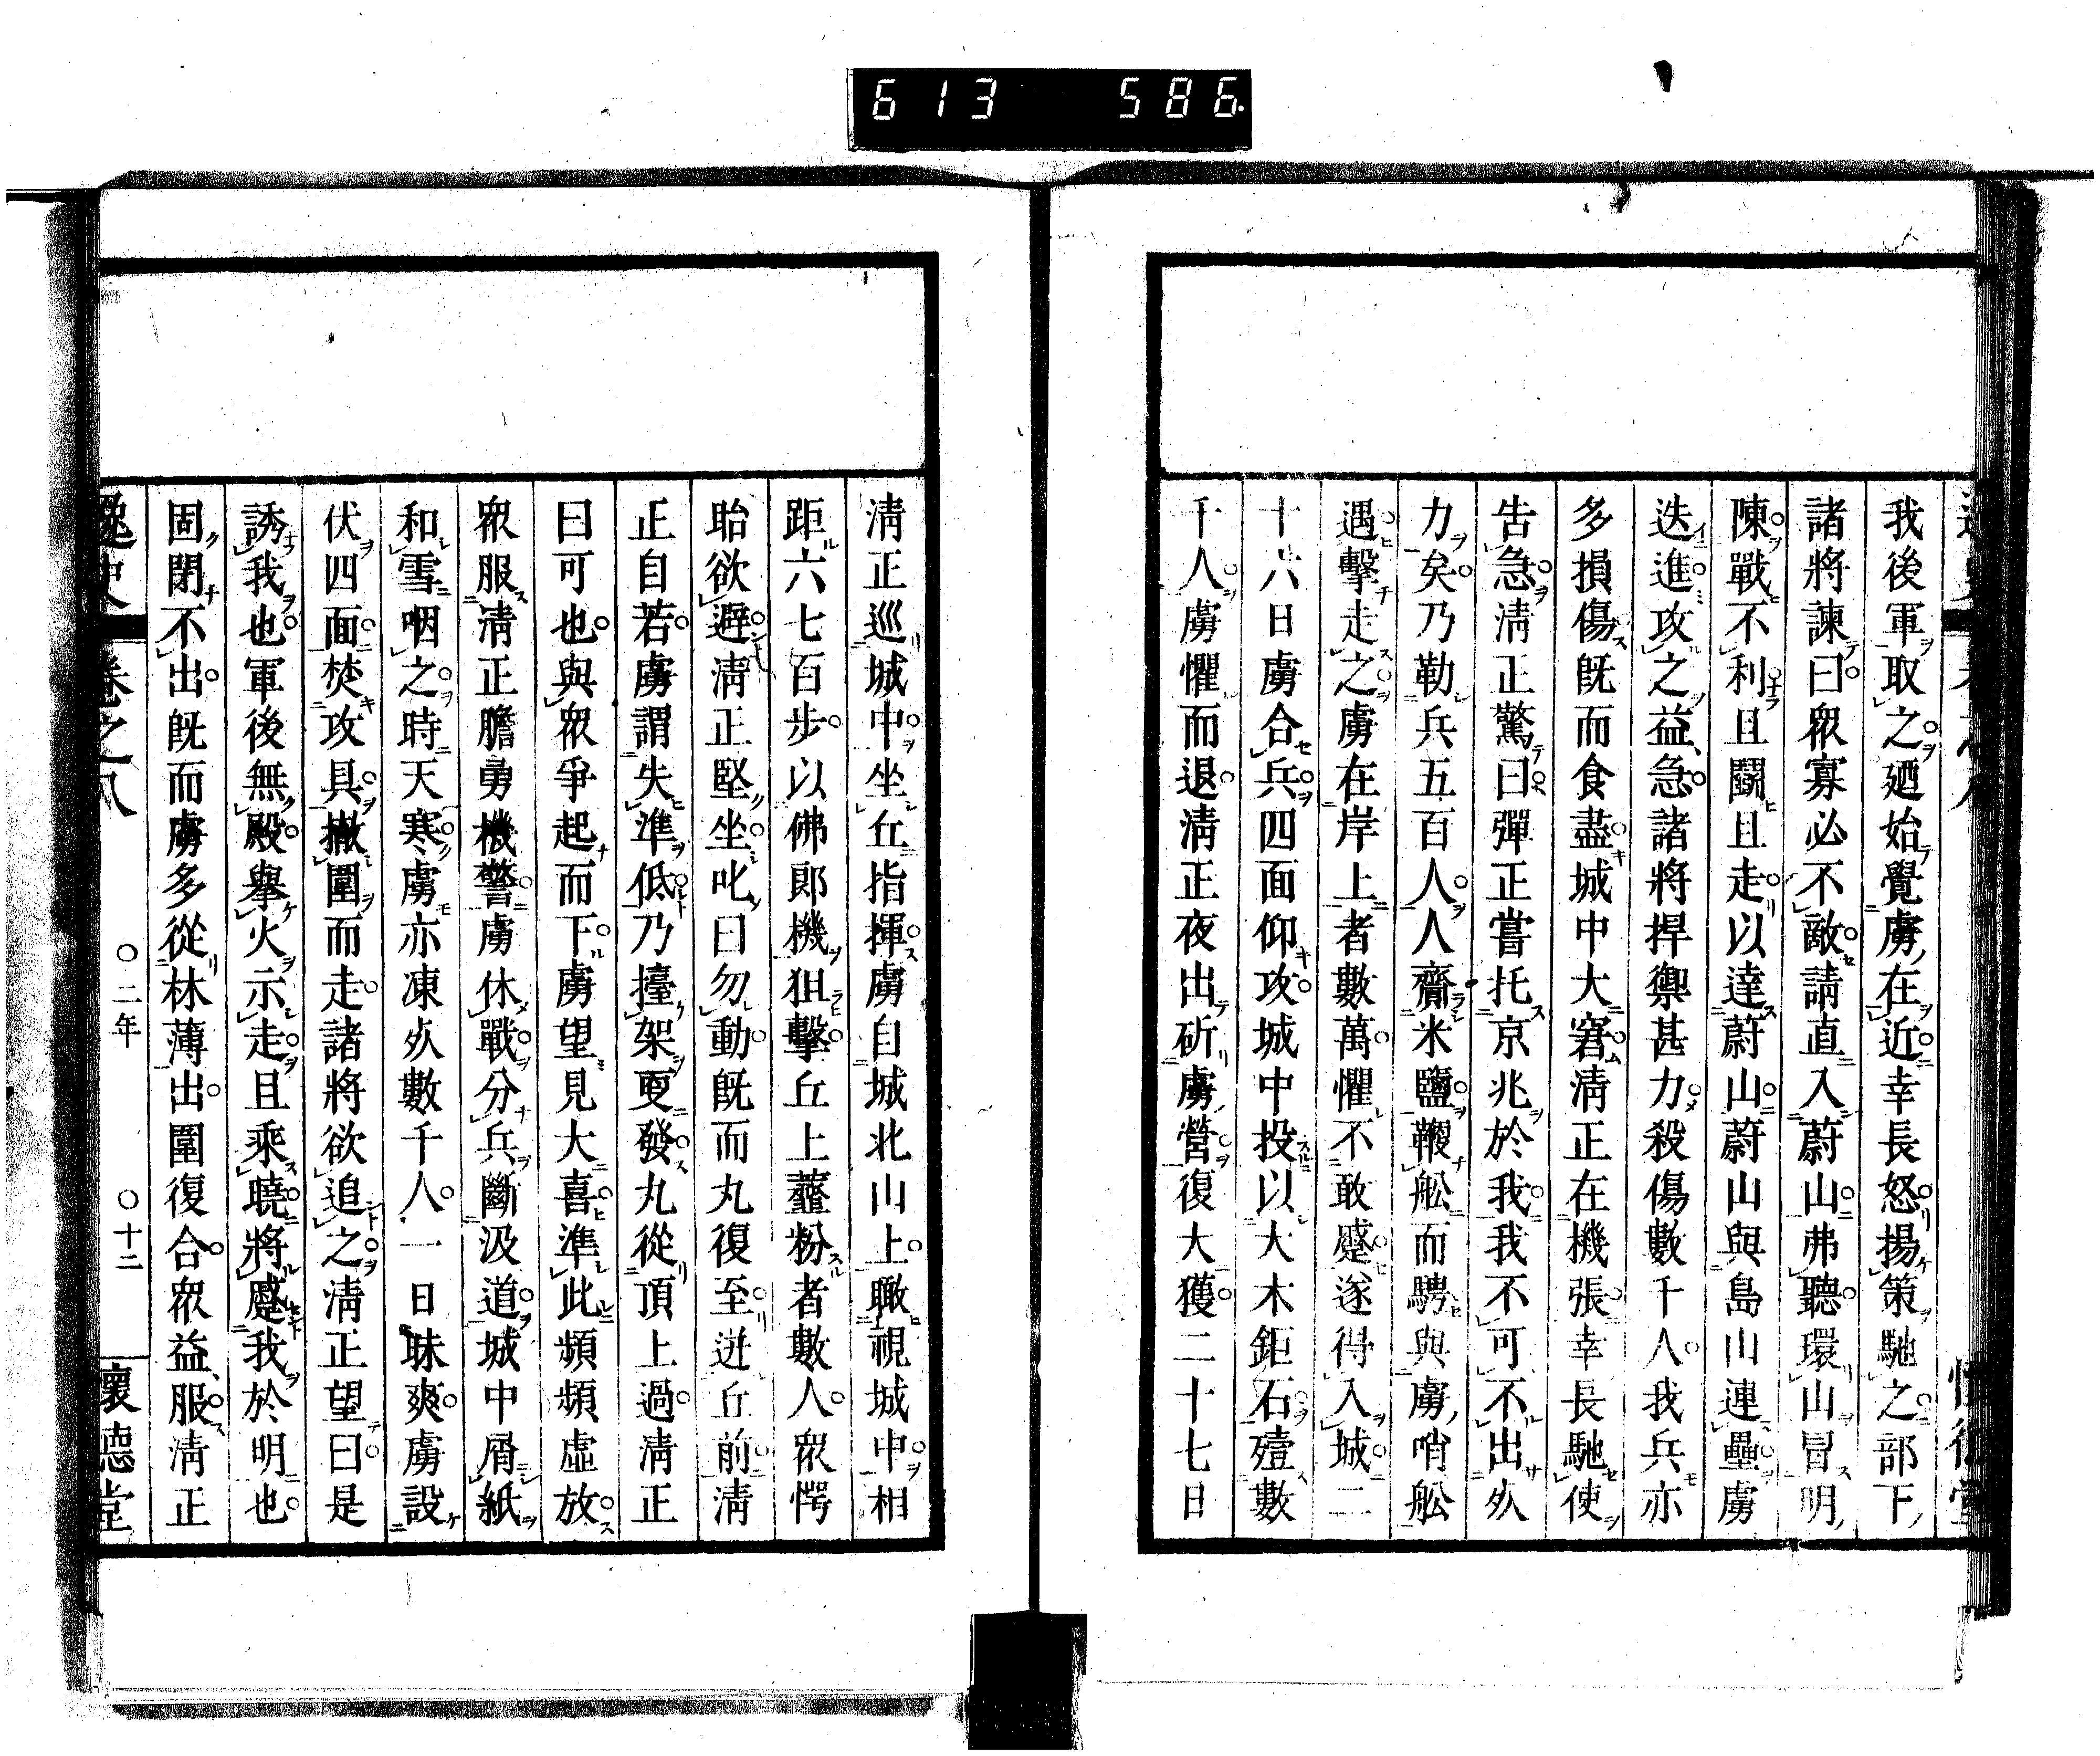 613 586
我後軍取之廼始覺虜在近幸長怒揚策馳之部下
諸將諫曰衆寡必不敵請直入蔚山弗聽環山冒明
陳戰不利且鬪且走以達蔚山蔚山與島山連壘虜
迭進攻之益急諸將捍禦甚力殺傷數千人我兵亦
多損傷既而食盡城中大窘淸正在機張幸長馳使
告急淸正驚曰彈正嘗托京兆於我我不可不出死
力矣乃勒兵五百人人齎米鹽鞭舩而騁與虜哨舩
遇擊走之虜在岸上者數萬懼不敢蹙遂得入城二
十六日虜合兵四面仰攻城中投以大木鉅石殪數
千人虜懼而退淸正夜出斫虜營復大獲二十七日
淸正巡城中坐丘指揮虜自城北山上瞰視城中相
距六七百步以佛郎機狙擊丘上虀粉者數人衆愕
眙欲避淸正堅坐叱曰勿動既而丸復至迸丘前淸
正自若虜謂失準低乃擡架更發丸從頂上過淸正
曰可也與衆爭起而下虜望見大喜準此頻頻虛放
衆服淸正膽勇機警虜休戰分兵斷汲道城中屑紙
和雪咽之時天寒虜亦凍死數千人一日昧爽虜設
伏四面焚攻具撤圍而走諸將欲追之淸正望曰是
誘我也軍後無殿擧火示走且乘曉將蹙我於明也
固閉不出既而虜多從林薄出圍復合衆益服淸正
逸史 卷之八 ○二年 ○十二 懷德堂